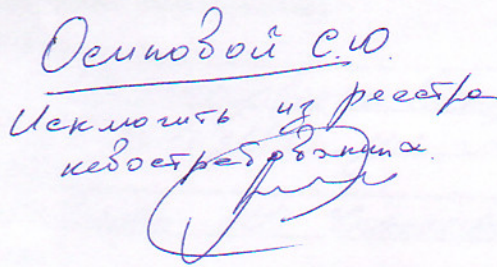 Осиповой С.Ю.
Исключить из реестра
невостребованных.